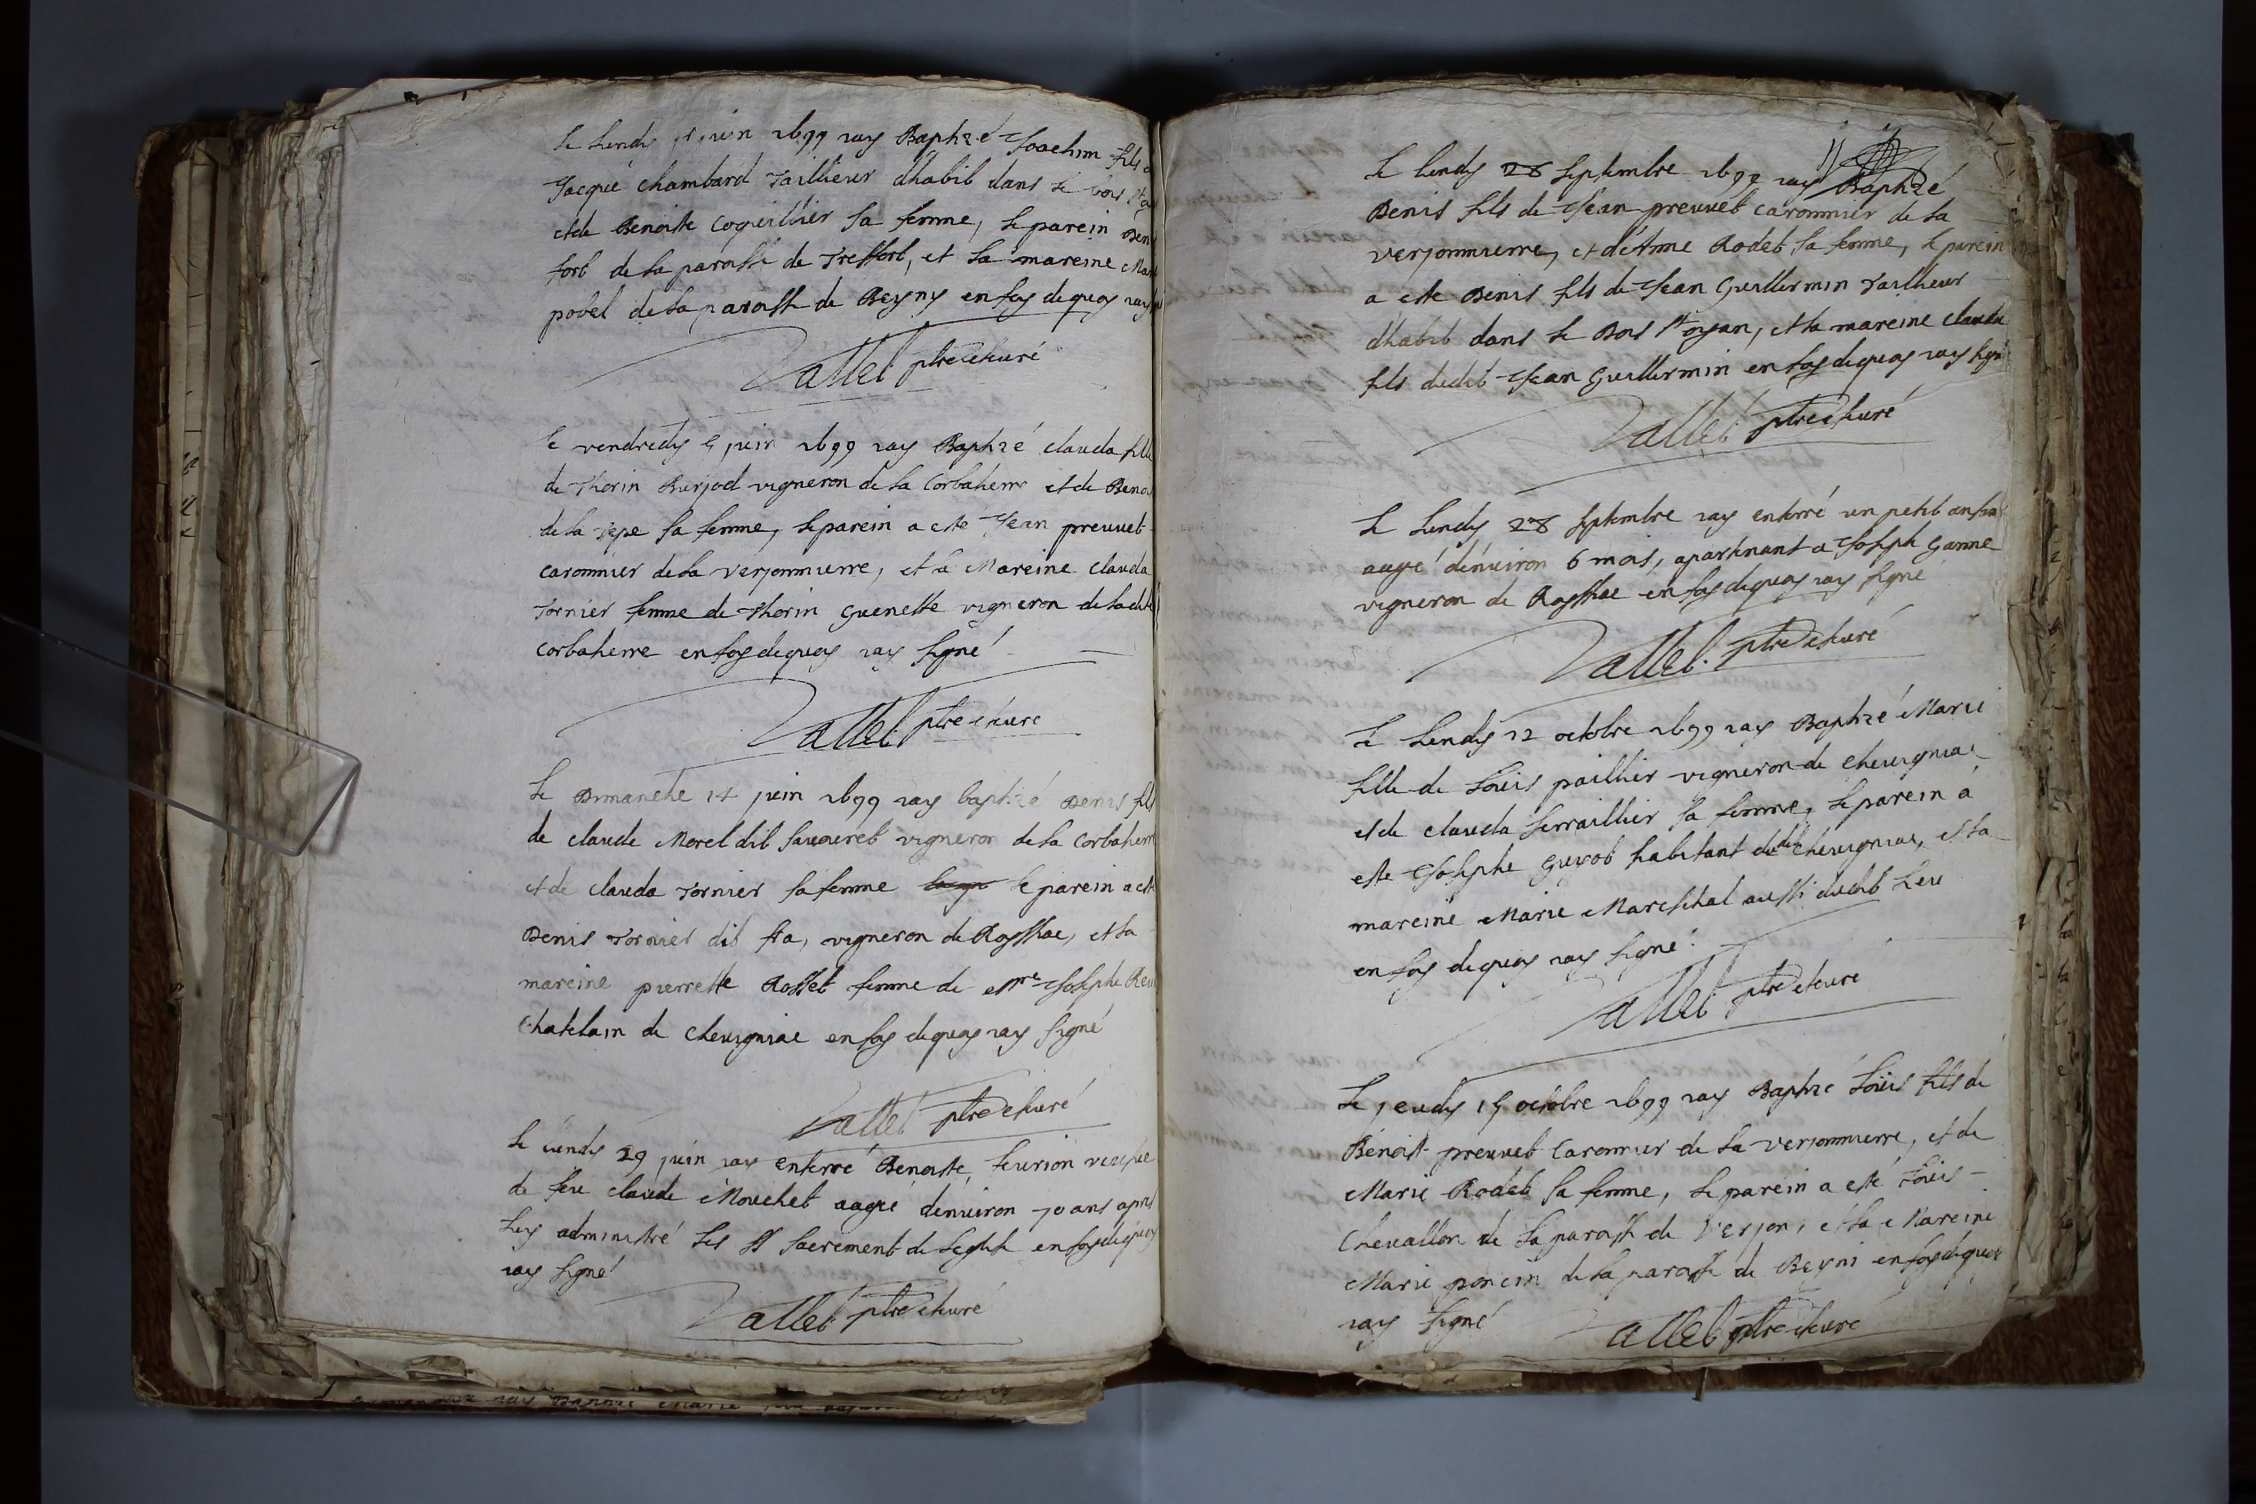 Le Lundy juin 1699 iay Baptizé Joachim fils
Jacque Chambard Tailleur dhabit dans le bois
et de Benoiste Coquillier sa femme, le parein Ben
fort de la paroisse de Treffort, et la mareine Mar
pobel de la paroisse de Beyny en foy dequoy iay
Vallet ptre et curé
le vendredy 5 juin 1699 iay Baptizé Clauda fille
de Thorin Burjod vigneron de la Corbatiere et de Beno
de la Tepe sa femme, le parein a esté Jean preuuet
caronnier de la verjonnierre, et la Mareine Clauda
Tornier femme de Thorin Guenette vigneron de ladite
Corbatierre en foy dequoy iay signé
Vallet ptre et curé
Le Dimanche 14 juin 1699 iay baptizé Denis fils
de claude Morel dit sauouret vigneron de la Corbatierr
et de clauda Tornier sa femme le parein a esté
Denis Tornier dit fra, vigneron de Rossiac, et la
mareine pierrette Rosset femme de Mre Josephe Reu
Chatelain de Cheuigniac en foy dequoy iay signé
Vallet ptre et curé
Le Lundy 29 juin iay enterré Benoiste leurion veufue
de feu claude Mouchet aagée denuiron 70 ans apres
luy administré les SS sacrement de leglise en foy dequoy
iay signé
Vallet ptre et curé
Le lundy 28 septembre 1699 iay Baptizé
Denis fils de Jean preuuet caronnier de la
verjonnierre, et de Anne Rodet sa femme, le parein
a este Denis fils de Jean Guillermin Tailleur
dhabit dans le Bois st oyan, et la mareine clauda
fils dudit Jean Guillermin en foy dequoy iay signé
Vallet ptre et curé
Le Lundy 28 septembre iay enterré un petit enfan
aagé denuiron 6 mois, apartenant a Joseph Ganne
vigneron de Rossiac en foy dequoy iay signé
Vallet ptre et curé
Le Lundy 12 octobre 1699 iay Baptizé Marie
fille de Loüis paillier vigneron de cheuigniac
et de clauda serraillier sa femme, le parein a
este Josephe Guyot habitant dudit cheuigniac, et la
mareine Marie Mareschal aussi dudit lieu
en foy dequoy iay signé
Vallet ptre et curé
Le jeudy 15 octobre 1699 iay Baptizé Loüis fils de
Benoist preuuet Caronnier de la verjonnierre, et de
Marie Rodet sa femme, le parein a esté Loüis
Cheuallon de la paroisse de Verjon, et la Mareine
Marie poncin de la paroisse de Beyni en foy dequoy
iay signé
Vallet ptre et curé